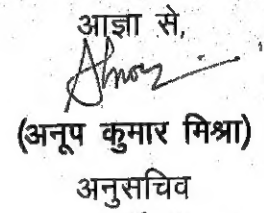 आज्ञा से,
(अनूप कुमार मिश्रा)
अनुसचिव